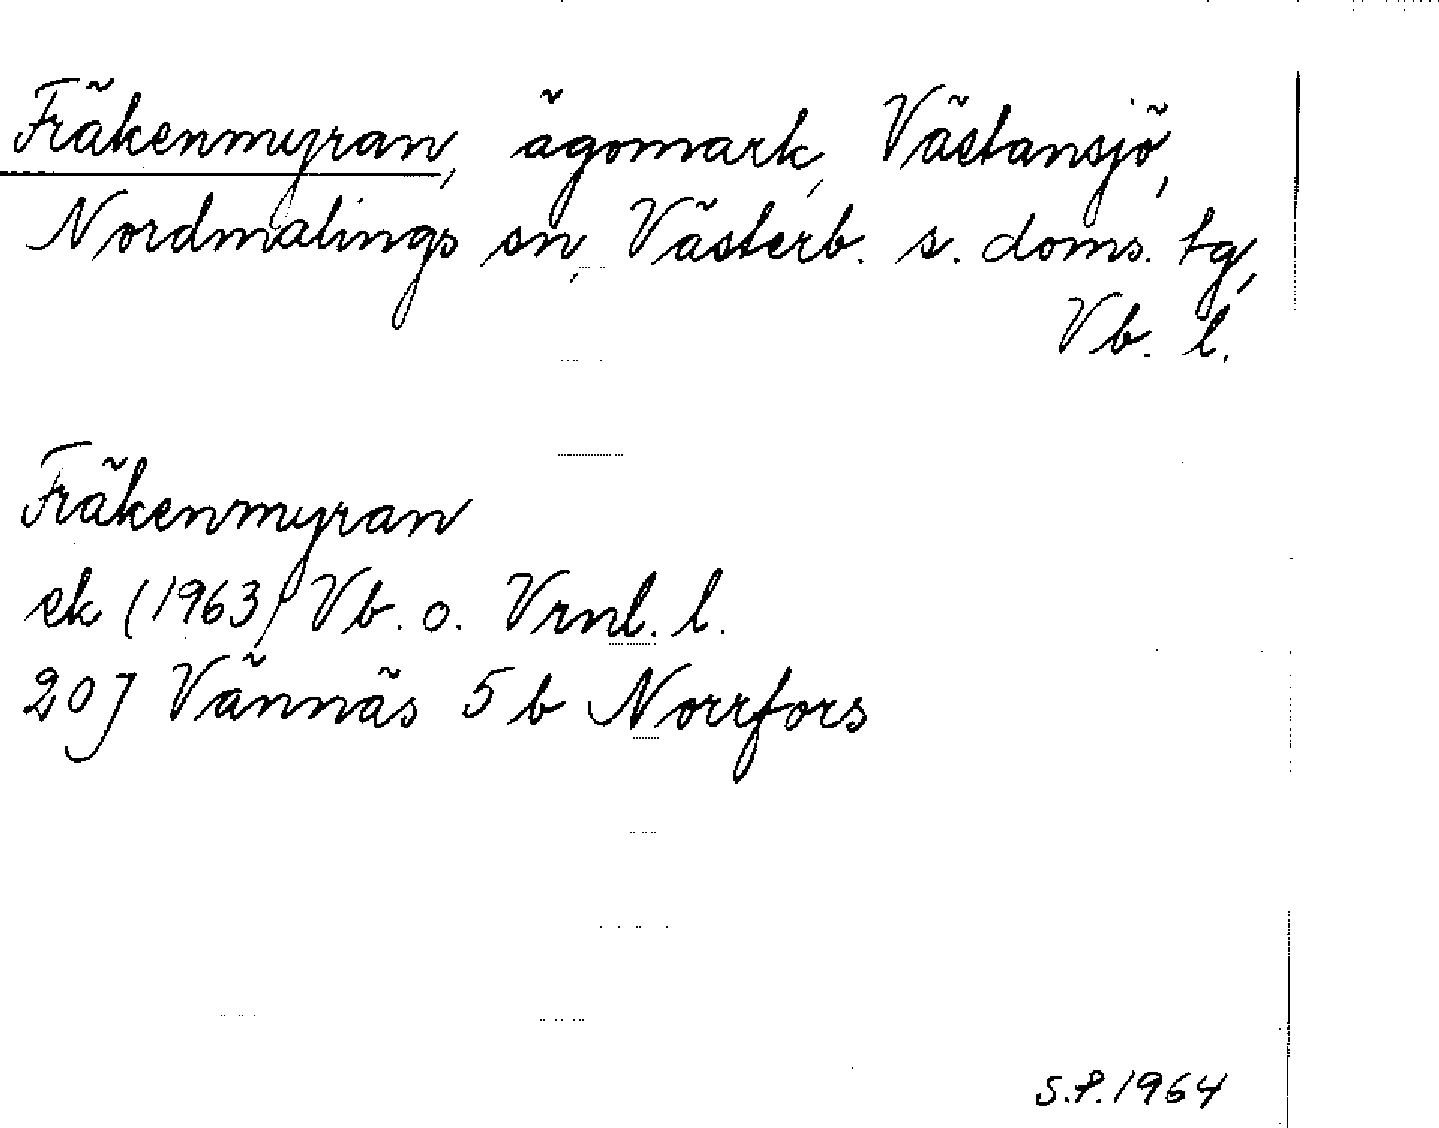 Fräkenmyran, ägomark, Västansjö,
Nordmalings sn, Västerb. s. doms. tg,
Vb. l.
Fräkenmyran
ek (1963) Vb. o. Vrnl. l.
20J Vännäs 5 b Norrfors
S.P. 1964